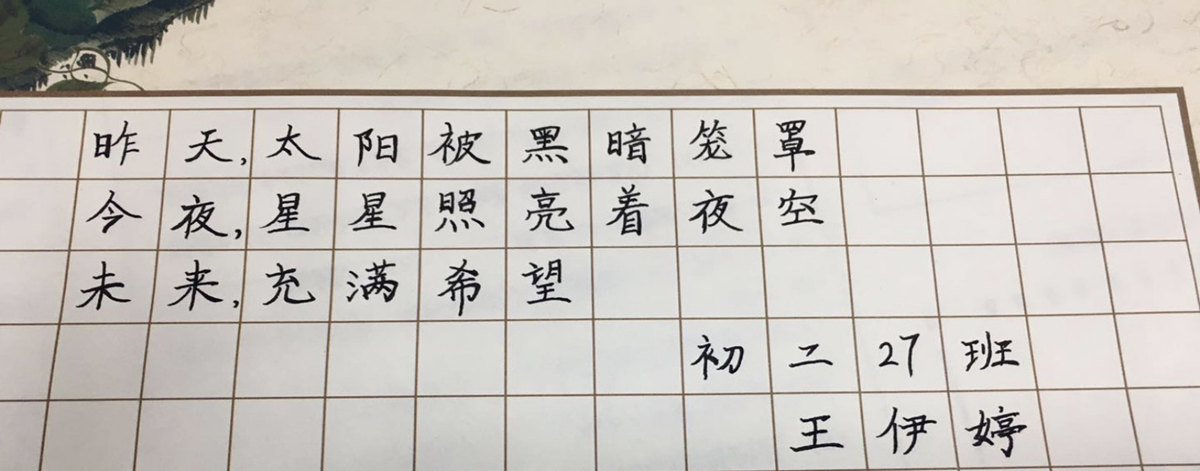 昨天,太阳被黑暗笼罩
今夜,星星照亮着夜空
未来,充满希望
初二27班
王伊婷